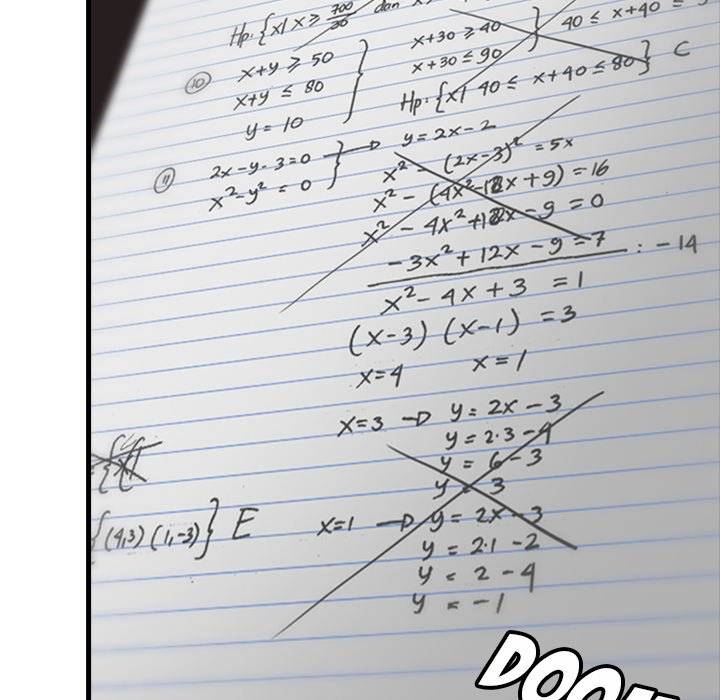 Hp: {x| x ≥ 700/30 dan x
10
x+y ≥ 50
x+y ≤ 80
y = 10
x+30 ≥ 40
x+30 ≤ 90
40 ≤ x+40 ≤
Hp: {x| 40 ≤ x+40 ≤ 80} C
11
2x-y-3=0
x²-y² = 0
y = 2x-2
x² - (2x-3)² = 5x
x² - (4x²-12x+9) = 16
x² - 4x²+12x-9 = 0
-3x²+12x-9=7 : -14
x²-4x+3 = 1
(x-3) (x-1) = 3
x=4 x=1
x=3 → y = 2x-3
y = 2.3-4
y = 6-3
y = 3
x=1 → y = 2x-3
y = 2.1-2
y = 2-4
y = -1
{(4,3) (1,-3)} E